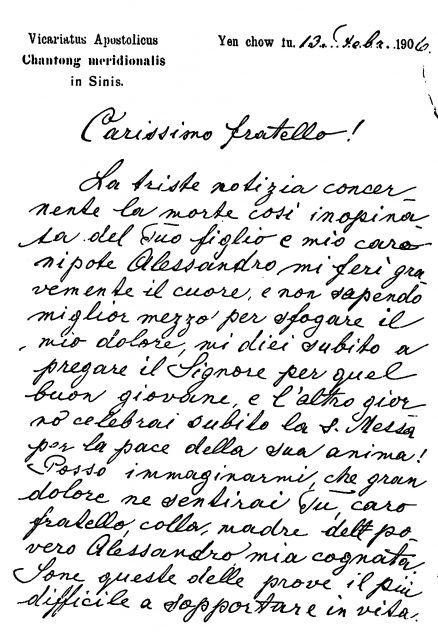 Vicariatus Apostolicus
Chantong meridionalis
in Sinis.
Yen chow fu. 13. Febr. 1906.
Carissimo fratello!
La triste notizia concer-
nente la morte così inopina-
ta del Tuo figlio e mio caro
nipote Alessandro, mi ferì gra-
vemente il cuore, e non sapendo
miglior mezzo per sfogare il
mio dolore, mi diei subito a
pregare il Signore per quel
buon giovane, e l'altro gior-
no celebrai subito la s. Messa
per la pace della sua anima!
Posso immaginarmi, che gran
dolore ne sentirai Tu, caro
fratello, colla madre dell po-
vero Alessandro mia cognata.
Sone queste delle prove il più
difficile a sopportare in vita.